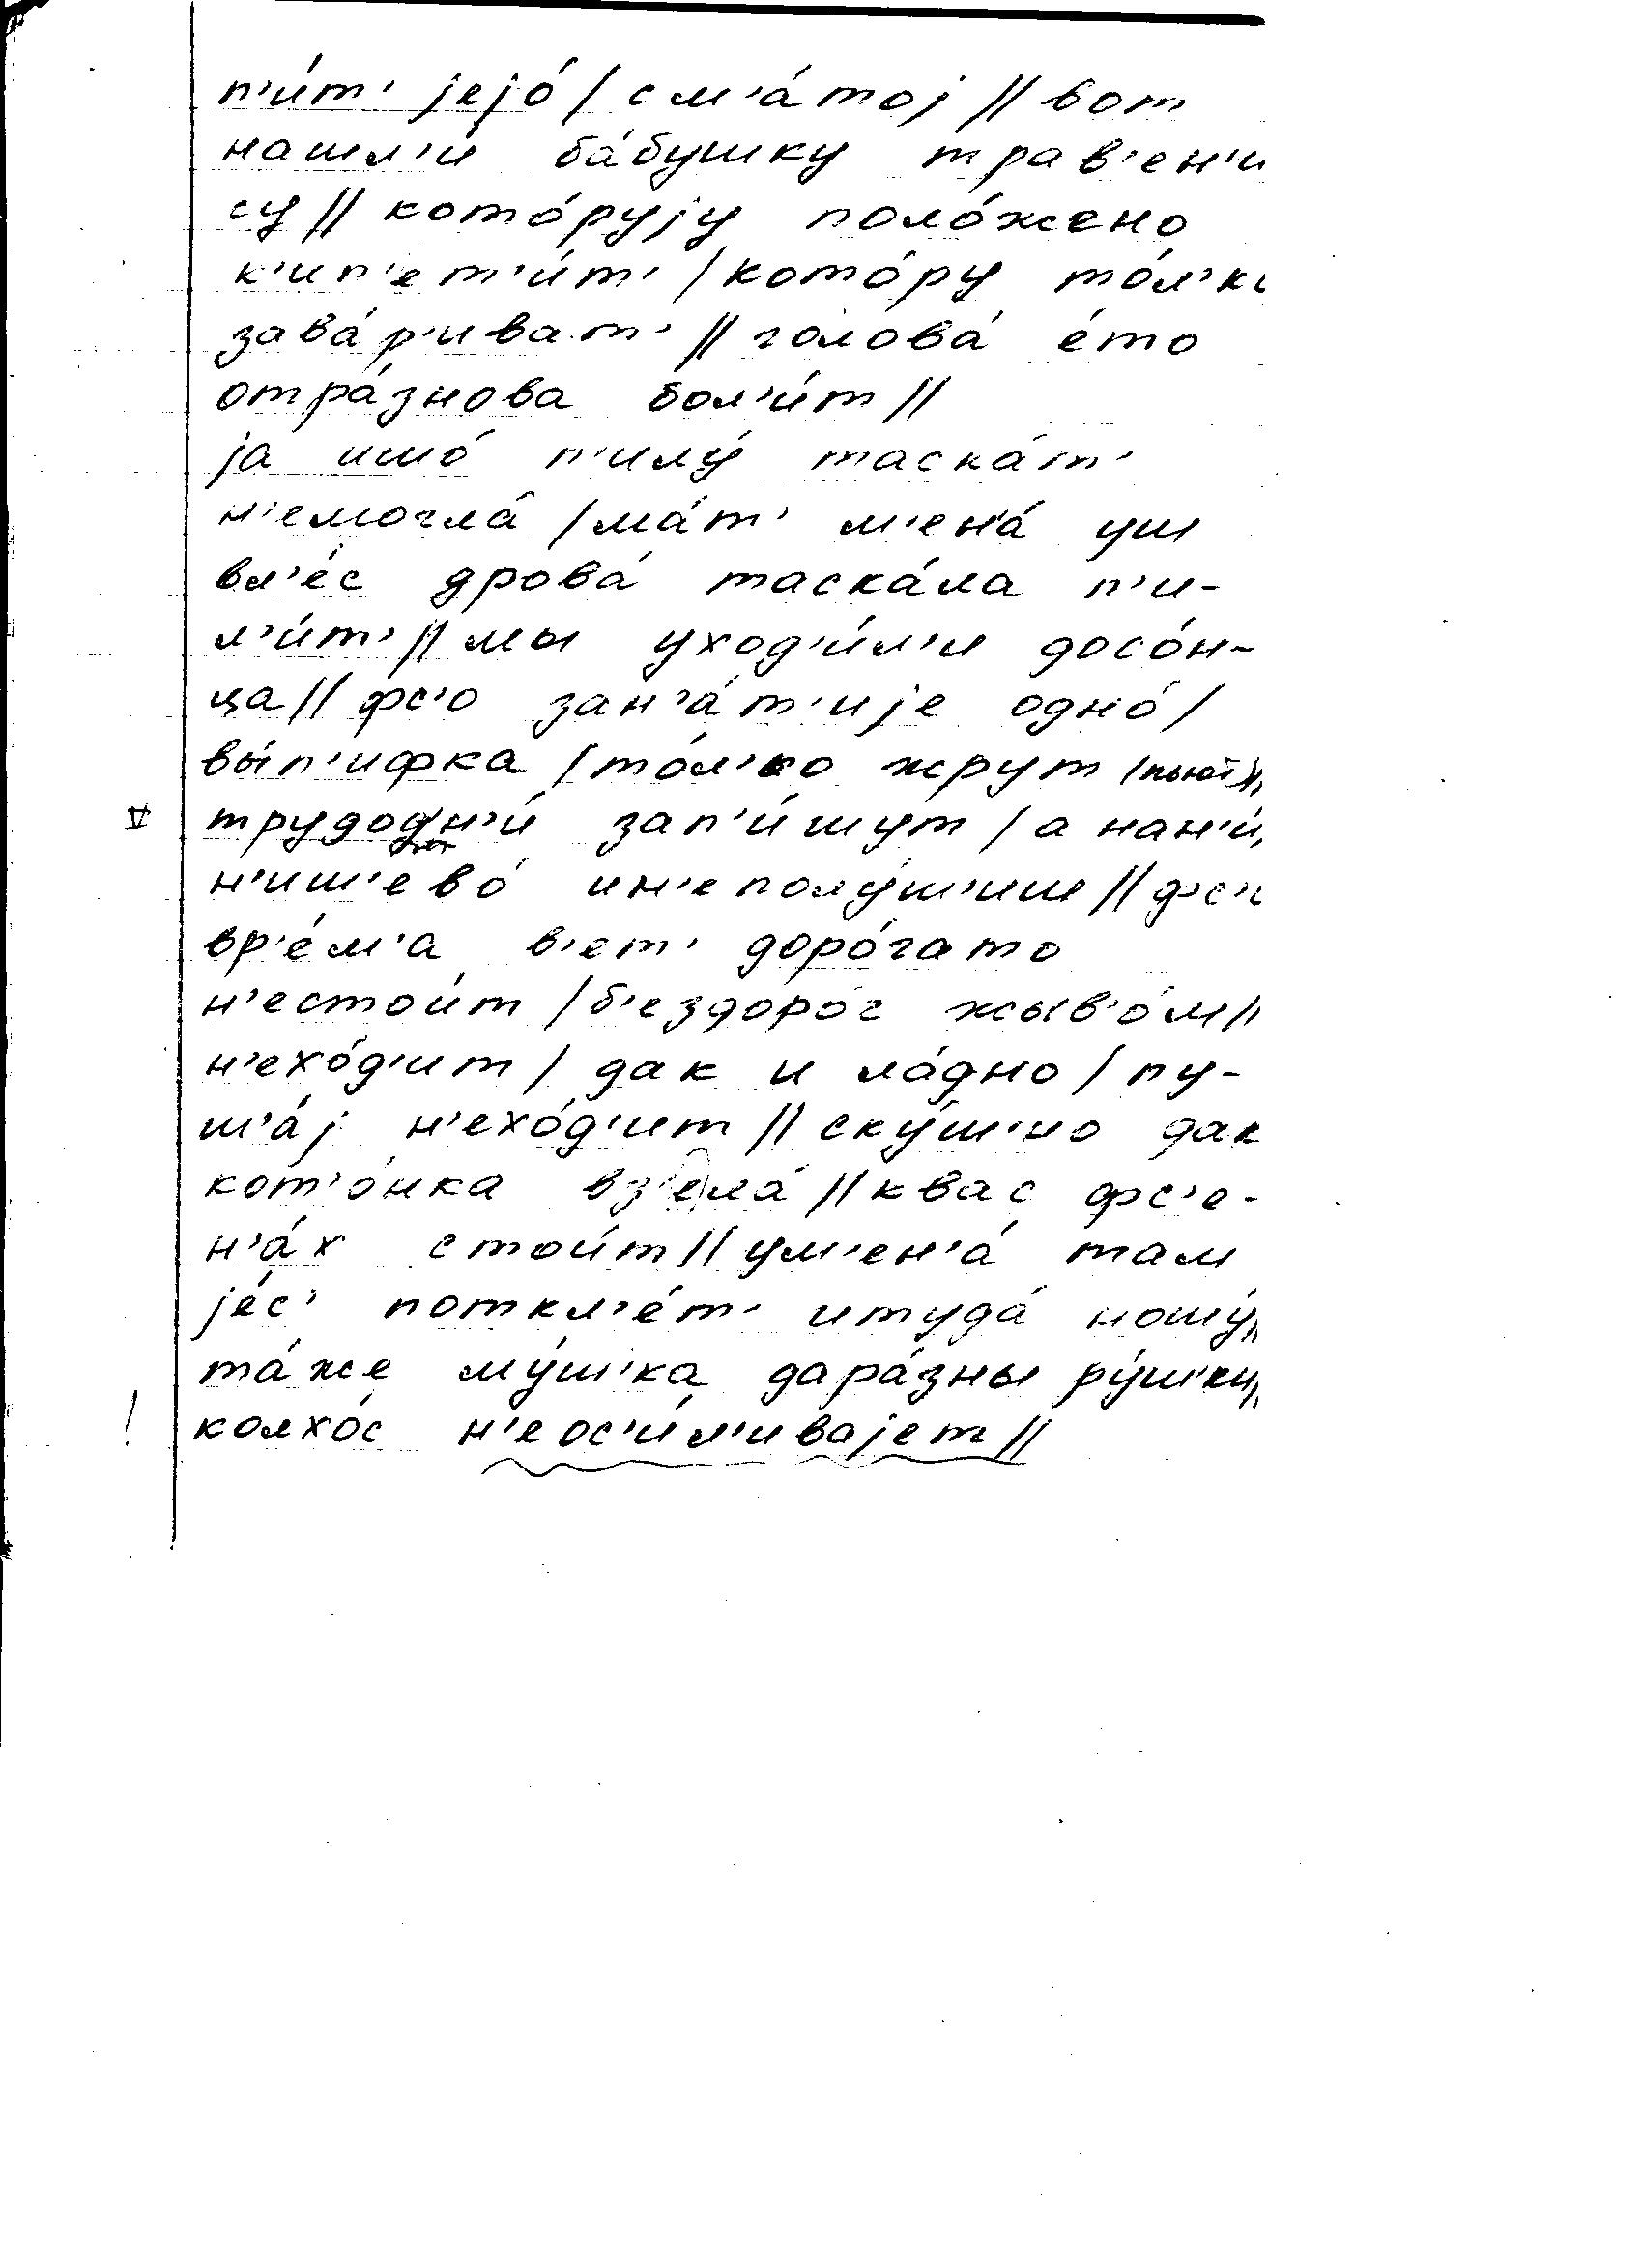 п'и́т' jejо́ / с м'а́тоj // вот
нашл'и́ ба́бушку трав'ен'и
су // кото́руjу поло́жено
к'ип'ет'и́т' / кото́ру то́л'к
зава́р'иват' // голова́ е́то
отра́знова бол'и́т //
jа ишо́ п'илу́ таска́т'
н'емогла́ / ма́т' м'ен'а́ уш
вл'е́с дрова́ таска́ла п'и-
л'и́т' // мы уход'и́л'и досо́н-
ца // фс'о зан'а́т'иjе одно́ /
вы́п'ифка / то́л'ко жрут (пьют) //
V трудодн'и́ зап'и́шут / а нан'и́х
н'иш'ево́ ин'еполу́ш'иш // фс'
вр'е́м'а в'ет' доро́гато
н'естои́т / б'ездоро́г жыв'о́м //
н'ехо́д'ит / дак и ла́дно / пу-
ш'а́j н'ехо́д'ит // ску́ш'но дак
кот'о́нка вз'ела́ // квас фс'е-
н'а́х стои́т // ум'ен'а́ там
jе́с' поткл'е́т' итуда́ ношу́ //
та́же му́ш'ка дара́зны ру́ш'ки //
! колхо́с н'еос'и́л'иваjет //